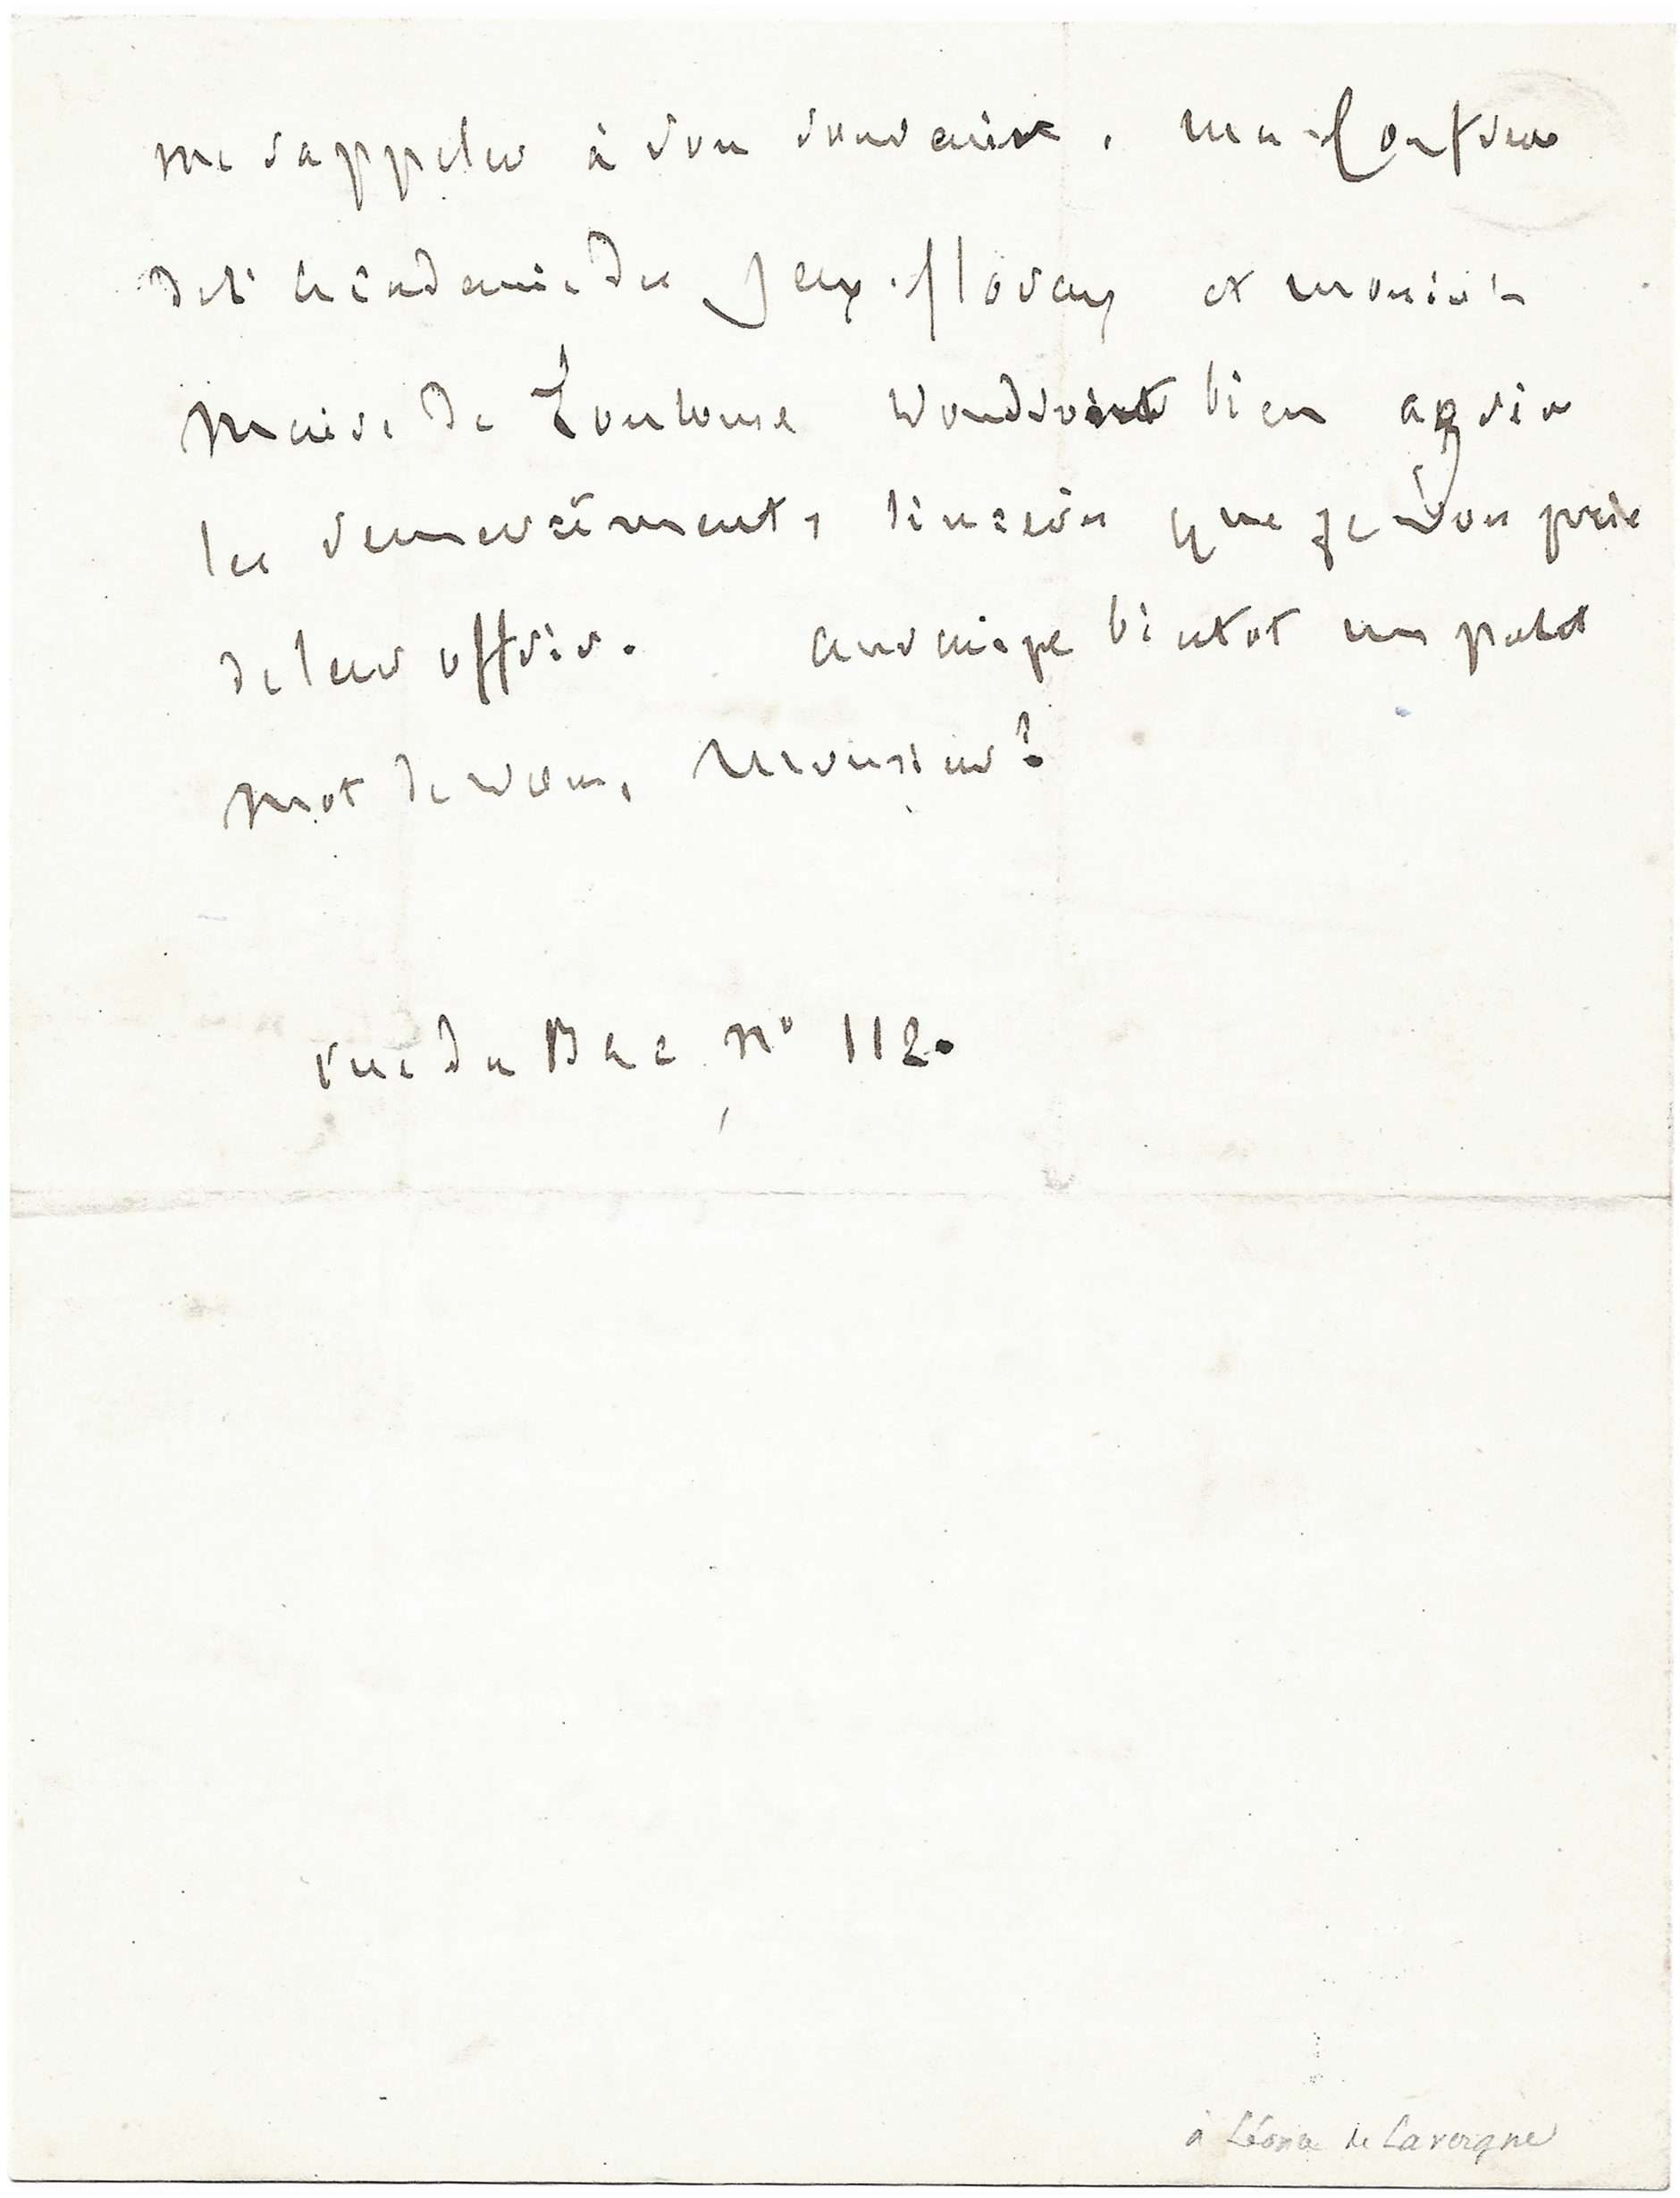 me rappeler à son souvenir. mes Confrères
de l'académie des Jeux-floraux et monsieur le
maire de Toulouse voudront bien agréer
les remerciments sincères que je vous prie
de leur offrir. aurai-je bientot un petit
mot de vous, Monsieur ?
rue du Bac n° 112.
à Léonce de Lavergne